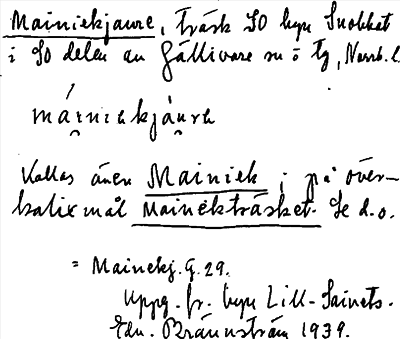 Mainiekjaure, träsk SO byn Snokket
i SO delen av Gällivare sn o tg, Norrb. l.
máiniekjáurɛ
Kallas även Mainiek i på över-
kalixmål Mainekträsket. Se d.o.
= Mainekj. G. 29.
Uppg. fr. byn Lill-Saivets.
Edv. Brännström 1939.